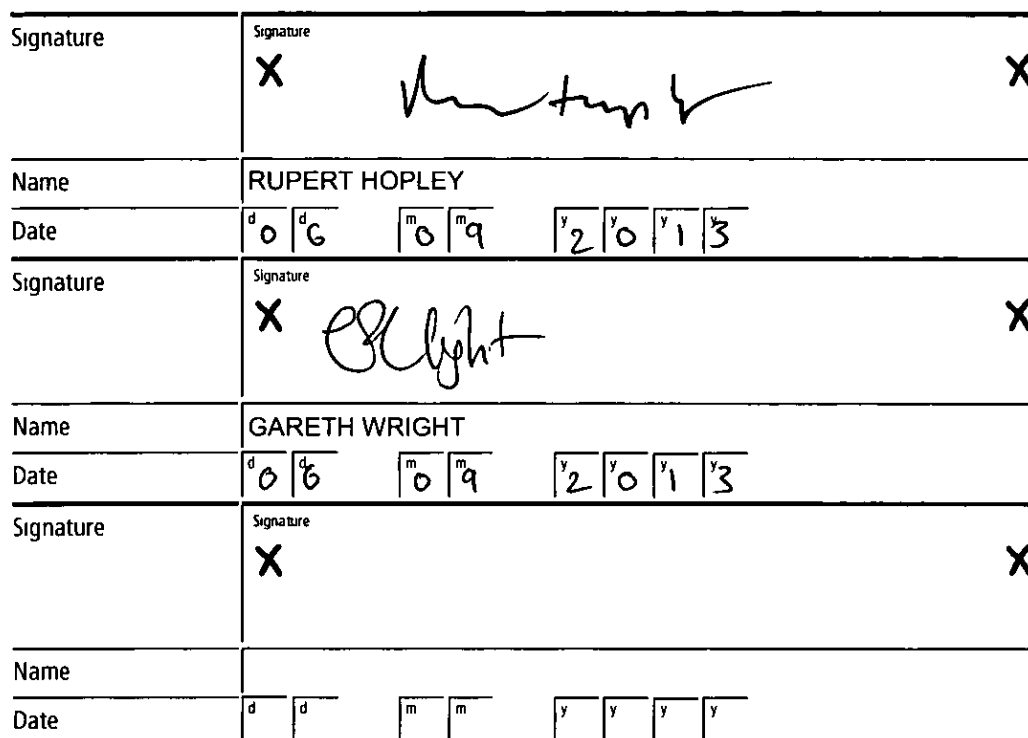 Signature
Signature
X X
Name RUPERT HOPLEY
Date d 0 d 6 m 0 m 9 y 2 y 0 y 1 y 3
Signature
Signature
X X
Name GARETH WRIGHT
Date d 0 d 6 m 0 m 9 y 2 y 0 y 1 y 3
Signature
Signature
X X
Name
Date d d m m y y y y